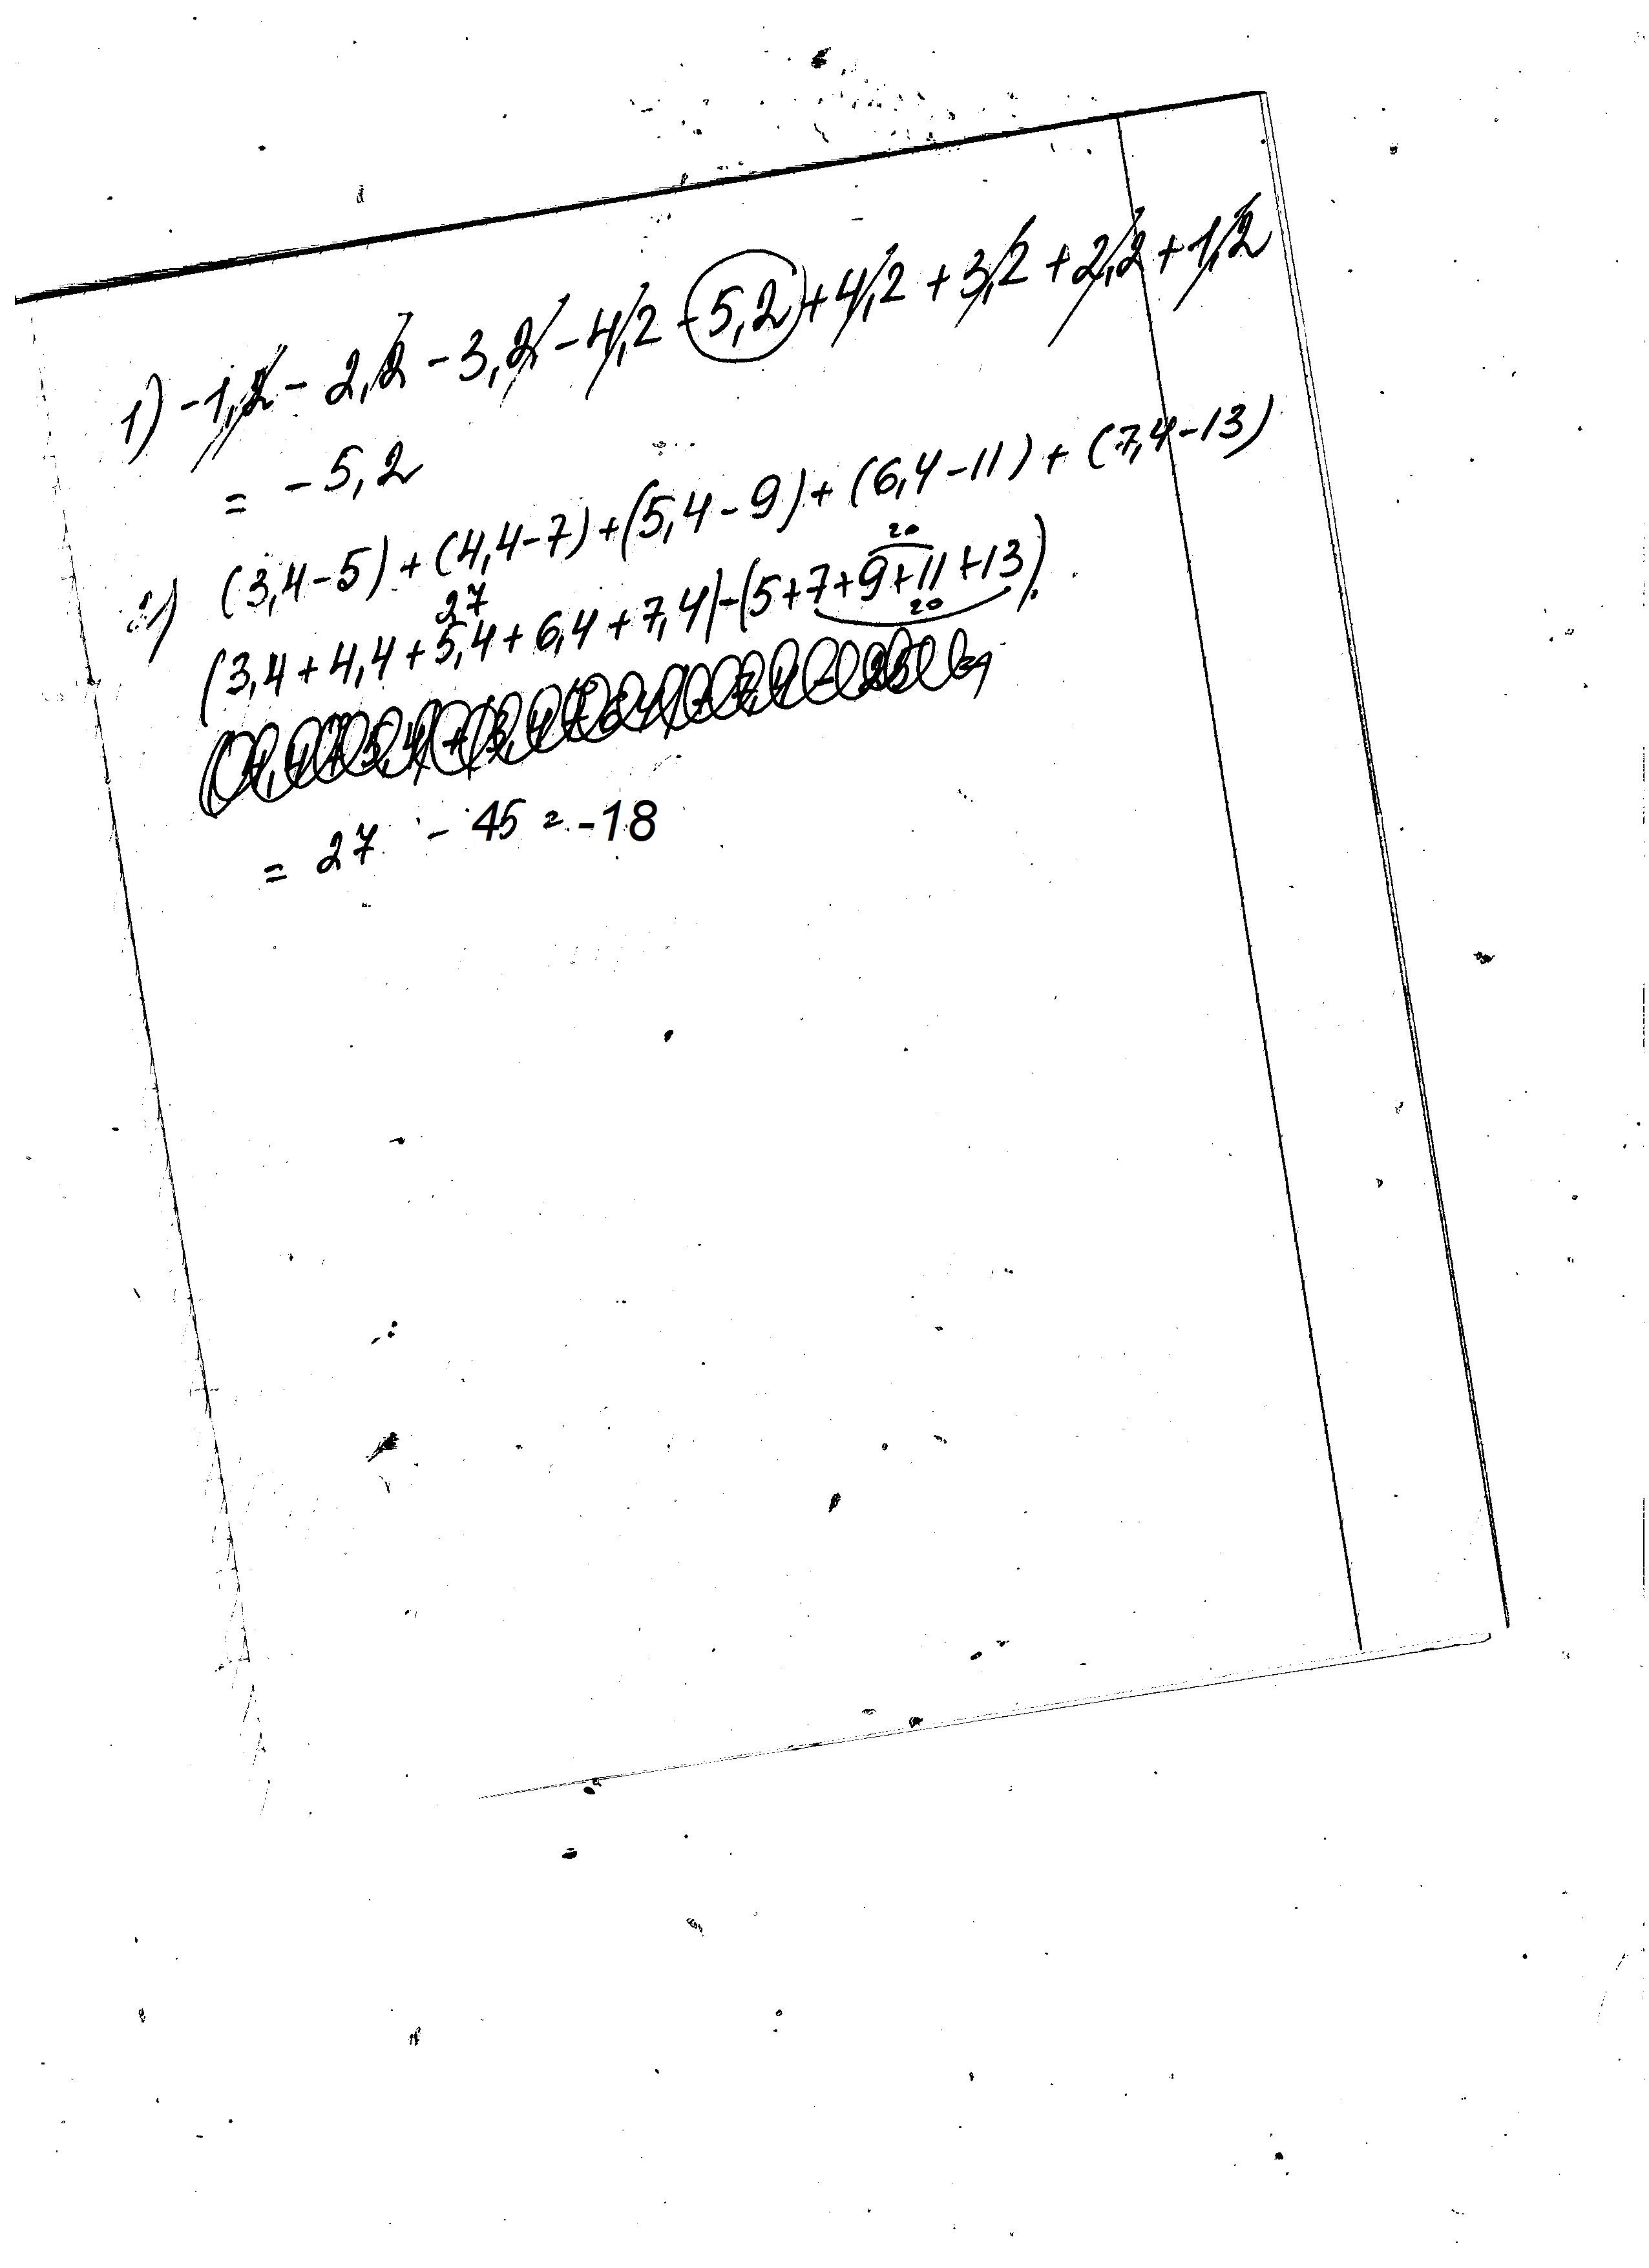 1) -1,2 - 2,2 - 3,2 - 4,2 - 5,2 + 4,2 + 3,2 + 2,2 + 1,2
= - 5,2
2) (3,4-5) + (4,4-7) + (5,4-9) + (6,4-11) + (7,4-13)
27 20
(3,4 + 4,4 + 5,4 + 6,4 + 7,4) - (5+7+9+11+13)
20
= 27 - 45 = -18